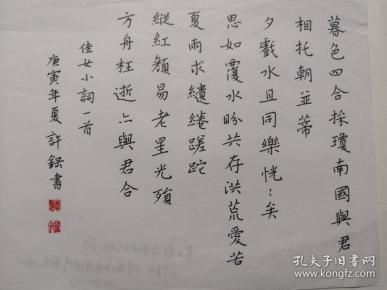 暮色四合採瓊南國與君
相托朝並蒂
夕戲水且同樂恍:矣
思如覆水盼共存洪荒愛苦
夏雨求繾綣蹉跎
縱紅顏易老星光殞
方舟枉逝亡與君合
佳女小詞一首
庚寅年夏許録書
孔夫子旧书网